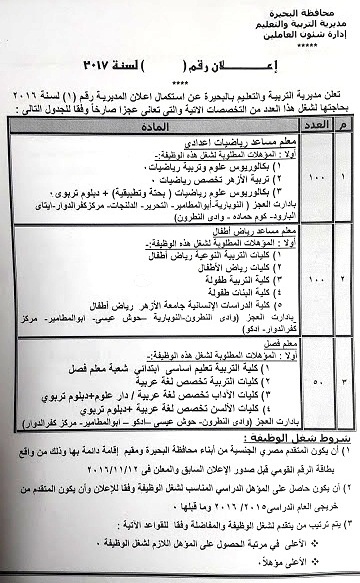 محافظة البحيرة
مديرية التربية والتعليم
إدارة شئون العاملين
*****
إعلان رقم ( ) لسنة ٢٠١٧
****
تعلن مديرية التربية والتعليم بالبحيرة عن استكمال اعلان المديرية رقم (١) لسنة ٢٠١٦
بحاجتها لشغل هذا العدد من التخصصات الاتية والتى تعانى عجزا صارخا وفقا للجدول التالى :
م العدد المادة
١ ١٠٠ معلم مساعد رياضيات اعدادى
أولا : المؤهلات المطلوبة لشغل هذه الوظيفة:-
١) بكالوريوس علوم وتربية رياضيات ٠
٢) تربية الأزهر تخصص رياضيات ٠
٣) بكالوريوس علوم رياضيات ( بحتة وتطبيقية) + دبلوم تربوى ٠
بادارت العجز ( النوبارية- أبوالمطامير- التحرير- الدلنجات- مركزكفرالدوار- ايتاى
البارود- كوم حماده - وادى النطرون)
٢ ١٠٠ معلم مساعد رياض أطفال
أولا : المؤهلات المطلوبة لشغل هذه الوظيفة:-
١) كليات التربية النوعية رياض أطفال
٢) كليات رياض الأطفال
٣) كلية التربية طفولة
٤) كلية البنات طفولة
٥) كلية الدراسات الإنسانية جامعة الأزهر رياض أطفال
بادارت العجز (وادى النطرون- النوبارية - حوش عيسى- ابوالمطامير- مركز
كفرالدوار- ادكو)
٣ ٥٠ معلم فصل
أولا : المؤهلات المطلوبة لشغل هذه الوظيفة:-
١) كلية التربية تعليم اساسى ابتدائي شعبة معلم فصل
٢) كليات التربية تخصص لغة عربية
٣) كليات الآداب تخصص لغة عربية / دار علوم+دبلوم تربوي
٤) كليات الألسن تخصص لغة عربية +دبلوم تربوي
بادارت العجز (وادى النطرون- حوش عيسى- ادكو - ابوالمطامير- مركز كفرالدوار)
شروط شغل الوظيفة :
١) أن يكون المتقدم مصري الجنسية من أبناء محافظة البحيرة ومقيم إقامة دائمة بها وذلك من واقع
بطاقة الرقم القومي قبل صدور الإعلان السابق والمعلن فى ٢٠١٦/١١/١٢
٢) أن يكون حاصل على المؤهل الدراسي المناسب لشغل الوظيفة وفقا للإعلان وأن يكون المتقدم من
خريجى العام الدراسى ٢٠١٥/ ٢٠١٦ وما قبلها ٠
٣) يتم ترتيب من يتقدم لشغل الوظيفة والمفاضلة وفقا للقواعد الآتية :
❖ الأعلى في مرتبة الحصول على المؤهل اللازم لشغل الوظيفة ٠
❖ الأعلى مؤهلاً